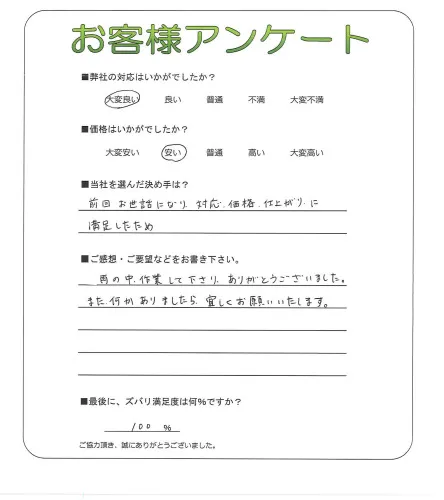 お客様アンケート
■弊社の対応はいかがでしたか?
大変良い 良い 普通 不満 大変不満
■価格はいかがでしたか?
大変安い 安い 普通 高い 大変高い
■当社を選んだ決め手は?
前回お世話になり、対応、価格、仕上がり、に
満足したため
■ご感想・ご要望などをお書き下さい。
雨の中、作業して下さり、ありがとうございました。
また、何かありましたら、宜しくお願いいたします。
■最後に、ズバリ満足度は何%ですか?
100 %
ご協力頂き、誠にありがとうございました。